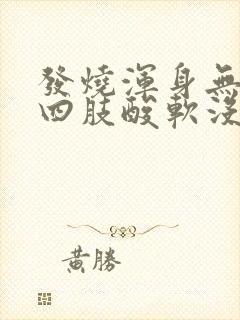 發燒渾身無
四肢酸軟沒
黃勝